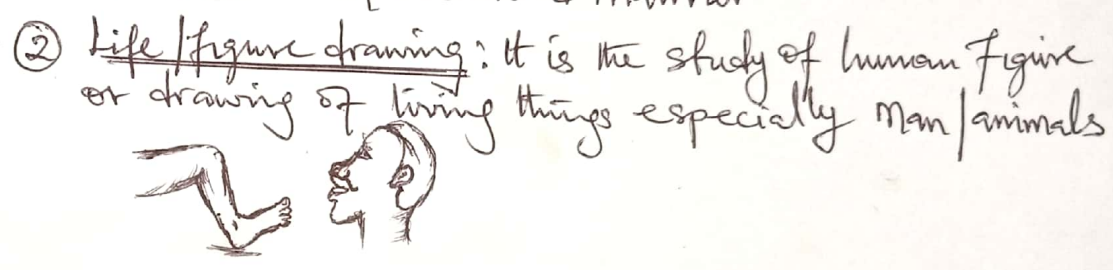 ② Life/figure drawing: It is the study of human Figure
or drawing of living things especially Man/animals